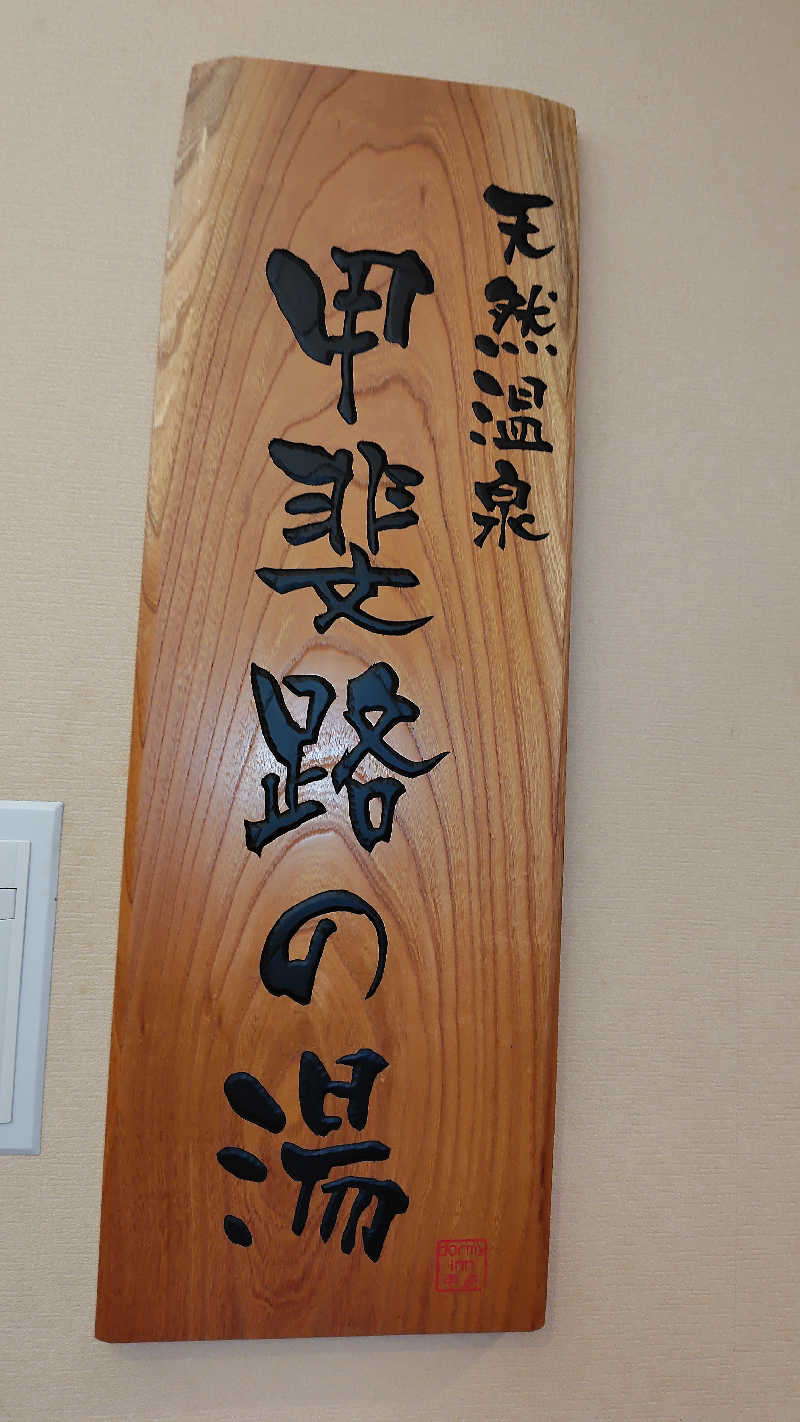 天然温泉
甲斐路の湯
dormy
inn
甲府